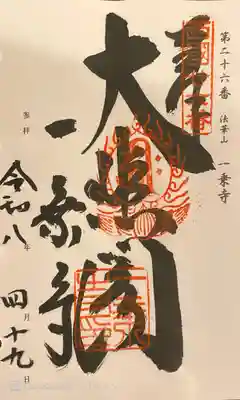 第二十六番 法華山 一乗寺
奉
大悲閣
一乗寺
参拝
令和八年四月十九日